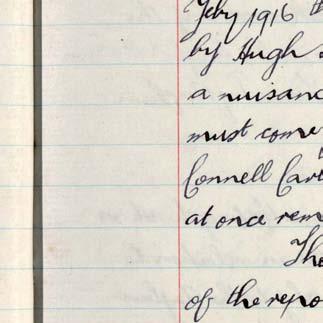 Feby 1916
by Hugh
a nuisanc
must come
Connell
at once rem
Tho
of the repo